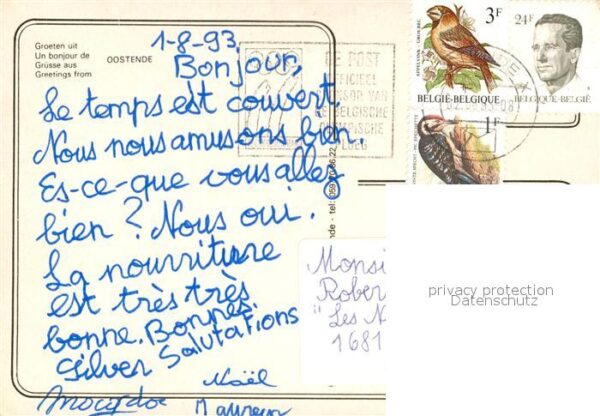 Groeten uit
Un bonjour de
Grüsse aus
Greetings from
OOSTENDE
1-8-93,
Bonjour,
Le temps est couvert.
Nous nous amusons bien.
Es-ce-que vous allez
bien ? Nous oui.
La nourriture
est très très
bonne. Bonnes
Salutations
Silver
Noël
DE POST
OFFICIEEL
BELGISCHE
PLOEG
3F
24F
BELGIË-BELGIQUE
BELGIQUE-BELGIË
1F
Monsi
Rober
"Les N
1681
privacy protection
Datenschutz